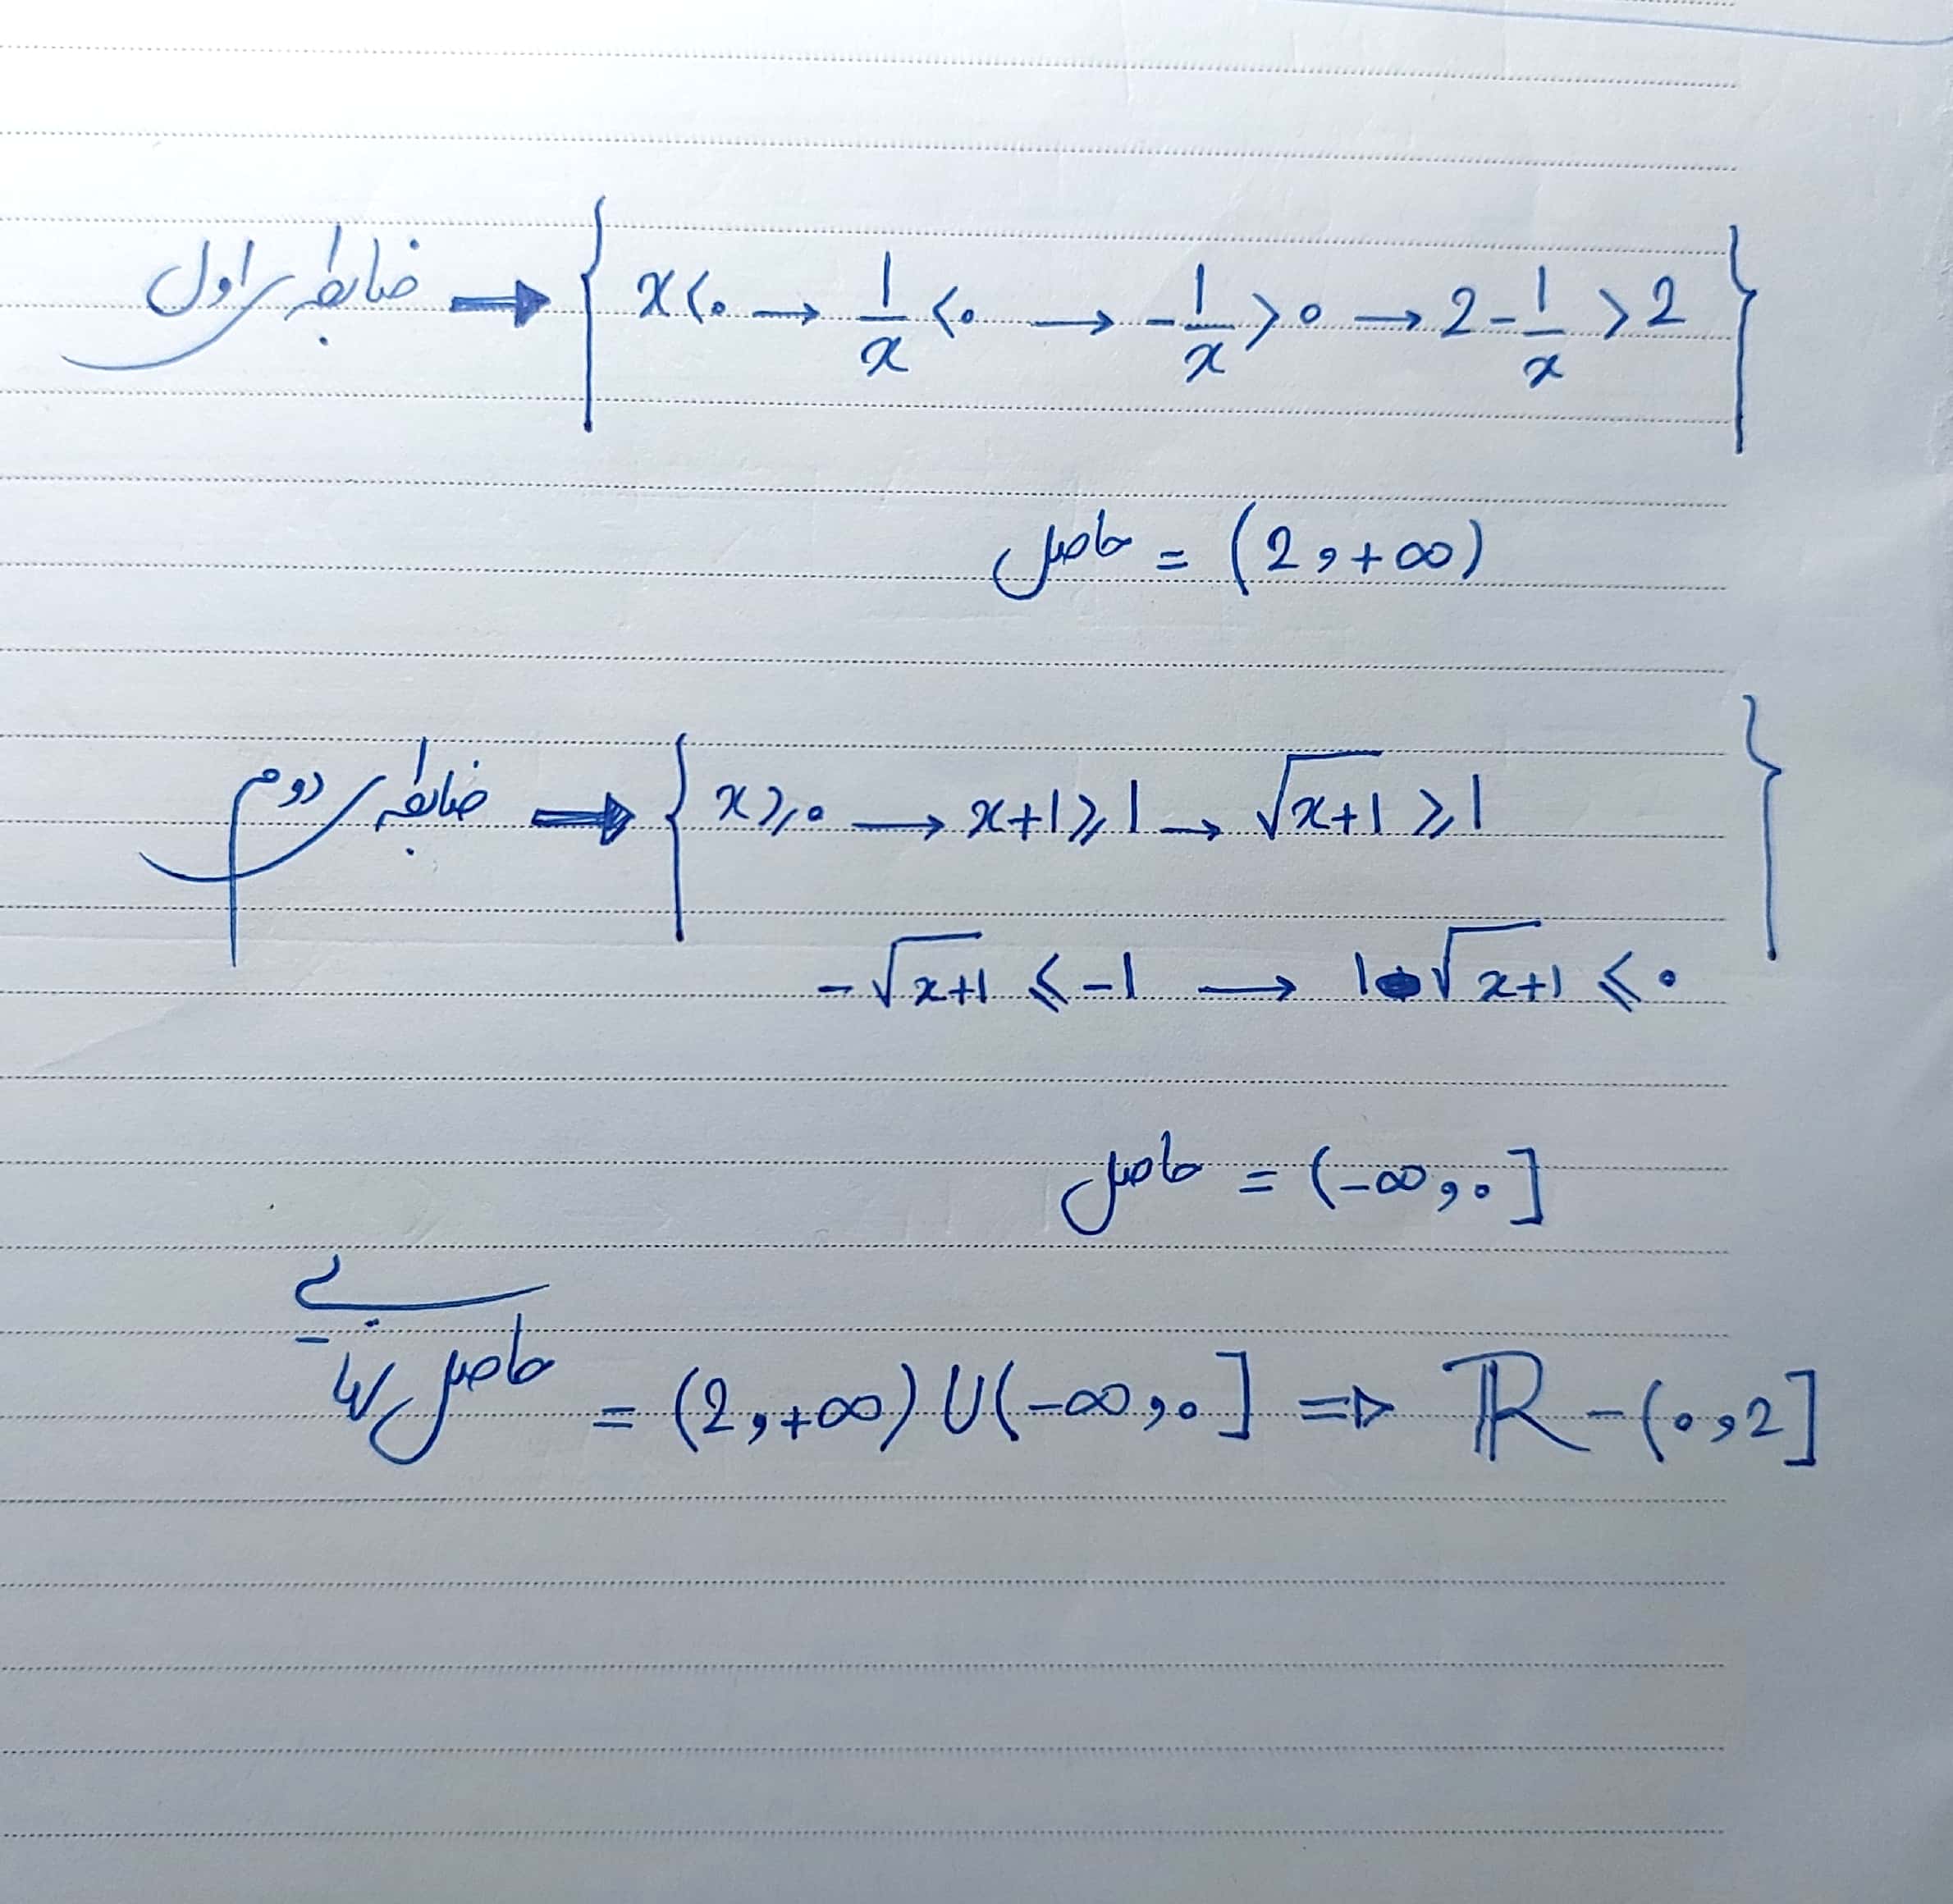 ضابطه اول → { x < 0 → 1/x < 0 → -1/x > 0 → 2 - 1/x > 2 }
حاصل = (2, +∞)
ضابطه دوم → { x ≥ 0 → x+1 ≥ 1 → √(x+1) ≥ 1 }
-√(x+1) ≤ -1 → 1-√(x+1) ≤ 0
حاصل = (-∞, 0]
حاصل نهایی = (2, +∞) ∪ (-∞, 0] ⇒ ℝ - (0, 2]